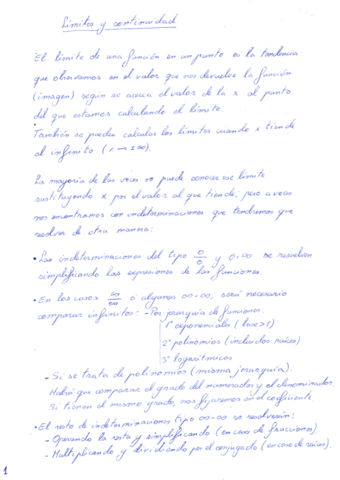 Límites y continuidad
El límite de una función en un punto es la tendencia
que observamos en el valor que nos devuelve la función
(imagen) según se acerca el valor de la x al punto
del que estamos calculando el límite.
También se pueden calcular los límites cuando x tiende
al infinito (x → ±∞).
La mayoría de las veces se puede conocer ese límite
sustituyendo x por el valor al que tiende; pero a veces
nos encontramos con indeterminaciones que tendremos que
resolver de otra manera:
• Las indeterminaciones del tipo 0/0 y 0·∞ se resuelven
simplificando las expresiones de las funciones.
• En los casos ∞/∞ o algunos ∞-∞, será necesario
comparar infinitos: - Por jerarquía de funciones
1º exponenciales (base>1)
2º polinomios (incluidas raíces)
3º logarítmicos
- Si se trata de polinomios (misma jerarquía).
Habrá que comparar el grado del numerador y el denominador.
Si tienen el mismo grado, nos fijaremos en el coeficiente
• El resto de indeterminaciones tipo ∞-∞ se resolverán:
- Operando la resta y simplificando (en caso de fracciones)
- Multiplicando y dividiendo por el conjugado (en caso de raíces).
1